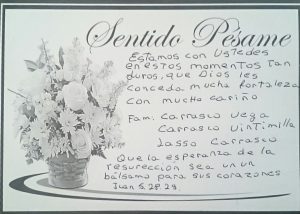 Sentido Pésame
Estamos con Ustedes
en estos momentos tan
duros, que Dios les
conceda mucha fortaleza
con mucho cariño
Fam. Carrasco Vega
Carrasco Vintimilla
Lasso Carrasco
Que la esperanza de la
resurección sea un un
bálsamo para sus corazones
Juan 5.28.29